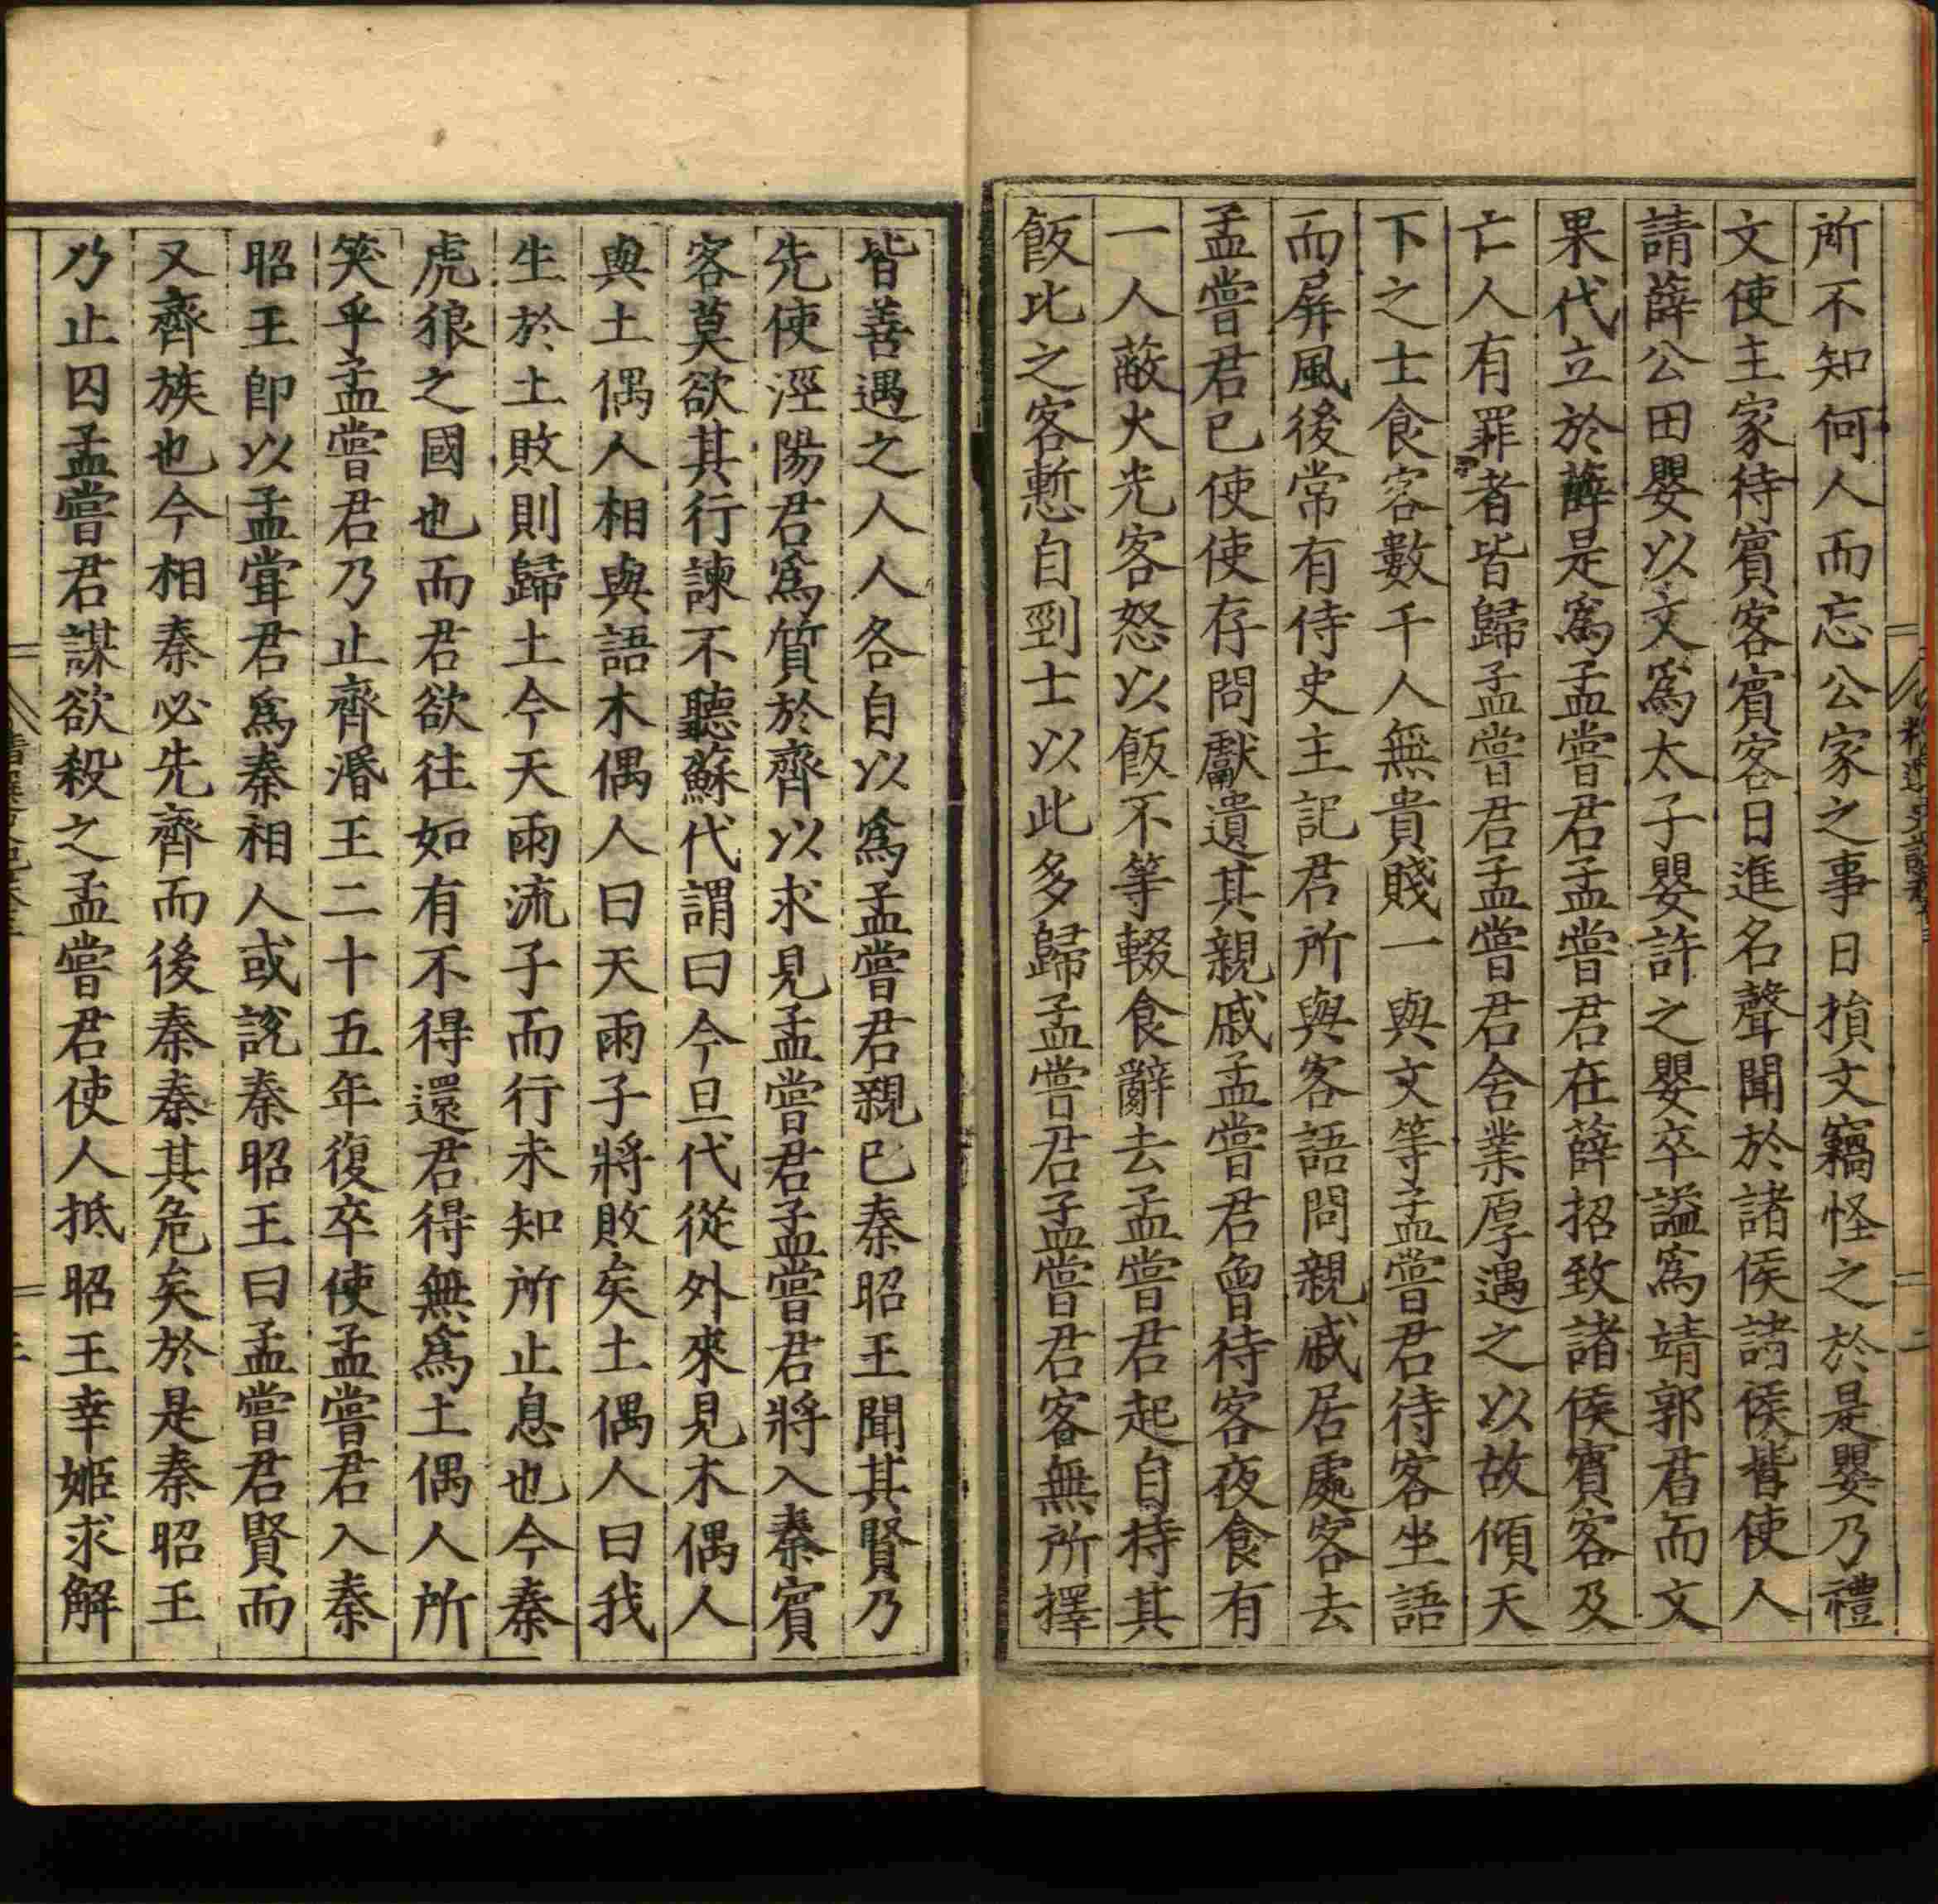 所不知何人而忘公家之事日損文竊怪之於是嬰乃禮
文使主家待賓客賓客日進名聲聞於諸侯諸侯皆使人
請薛公田嬰以文爲太子嬰許之嬰卒謚爲靖郭君而文
果代立於薛是爲孟嘗君孟嘗君在薛招致諸侯賓客及
亡人有罪者皆歸孟嘗君孟嘗君舍業厚遇之以故傾天
下之士食客數千人無貴賤一與文等孟嘗君待客坐語
而屏風後常有侍史主記君所與客語問親戚居處客去
孟嘗君已使使存問獻遺其親戚孟嘗君曾待客夜食有
一人蔽火光客怒以飯不等輟食辭去孟嘗君起自持其
飯比之客慙自剄士以此多歸孟嘗君孟嘗君客無所擇
皆善遇之人人各自以爲孟嘗君親已秦昭王聞其賢乃
先使涇陽君爲質於齊以求見孟嘗君孟嘗君將入秦賓
客莫欲其行諫不聽蘇代謂曰今旦代從外來見木偶人
與土偶人相與語木偶人曰天雨子將敗矣土偶人曰我
生於土敗則歸土今天雨流子而行未知所止息也今秦
虎狼之國也而君欲往如有不得還君得無爲土偶人所
笑乎孟嘗君乃止齊湣王二十五年復卒使孟嘗君入秦
昭王卽以孟嘗君爲秦相人或說秦昭王曰孟嘗君賢而
又齊族也今相秦必先齊而後秦秦其危矣於是秦昭王
乃止囚孟嘗君謀欲殺之孟嘗君使人抵昭王幸姬求解